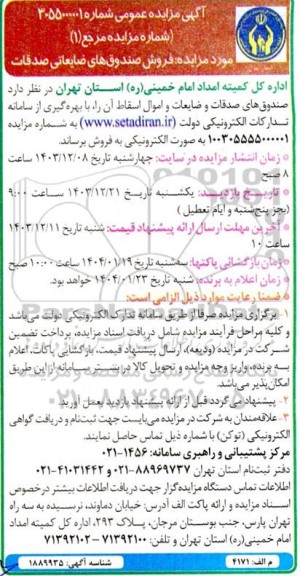 آگهی مزایده عمومی شماره ۳۰۵۵۰۰۰۰۰۱
(شماره مزایده مرجع (۱))
مورد مزایده: فروش صندوق‌های ضایعاتی صدقات
اداره کل کمیته امداد امام خمینی(ره) استان تهران در نظر دارد
صندوق‌های صدقات و ضایعات و اموال اسقاط آن را، با بهره‌گیری از سامانه
تدارکات الکترونیکی دولت (www.setadiran.ir) به شماره مزایده
۱۰۰۳۰۵۵۵۵۰۰۰۰۰۱ به صورت الکترونیکی به فروش برساند.
زمان انتشار مزایده در سایت: چهارشنبه تاریخ ۱۴۰۳/۱۲/۰۸ ساعت
۸ صبح
تاریخ بازدید: یکشنبه تاریخ ۱۴۰۳/۱۲/۲۱ ساعت ۹:۰۰
(بجز پنج‌شنبه و ایام تعطیل)
آخرین مهلت ارسال ارائه پیشنهاد قیمت: شنبه تاریخ ۱۴۰۳/۱۲/۱۱
ساعت ۱۰
زمان بازگشائی پاکتها: سه‌شنبه تاریخ ۱۴۰۴/۰۱/۱۹ ساعت ۱۰:۰۰ صبح
زمان اعلام به برنده: شنبه تاریخ ۱۴۰۴/۰۱/۲۳ خواهد بود.
ضمنا رعایت موارد ذیل الزامی است:
۱- برگزاری مزایده صرفا از طریق سامانه تدارک الکترونیکی دولت می‌باشد
و کلیه مراحل فرآیند مزایده شامل دریافت اسناد مزایده، پرداخت تضمین
شرکت در مزایده (ودیعه)، ارسال پیشنهاد قیمت، بازگشایی پاکات، اعلام
به برنده، واریز وجه مزایده و تحویل کالا در بستر سامانه از این طریق
امکان‌پذیر می‌باشد.
۲- پیشنهاد می‌گردد قبل از ارائه پیشنهاد بازدید بعمل آورید
۳- علاقه‌مندان به شرکت در مزایده می‌بایست جهت ثبت‌نام و دریافت گواهی
الکترونیکی (توکن) با شماره ذیل تماس حاصل نمایند.
مرکز پشتیبانی و راهبری سامانه: ۱۴۵۶-۰۲۱
دفتر ثبت‌نام استان تهران ۸۸۹۶۹۷۳۷-۰۲۱ و ۴۱۰۳۱۴۴۲-۰۲۱
اطلاعات تماس دستگاه مزایده‌گزار جهت دریافت اطلاعات بیشتر درخصوص
اسناد مزایده و ارائه پاکت الف آدرس: خیابان دماوند، نرسیده به سه راه
تهران پارس، جنب بوستان مرجان، پلاک ۲۹۳، اداره کل کمیته امداد
امام خمینی(ره) استان تهران و تلفن: ۷۱۳۹۲۱۰۰ - ۷۱۳۹۲۱۰۲
م الف: ۴۱۷۱
شناسه آگهی: ۱۸۸۹۹۳۵